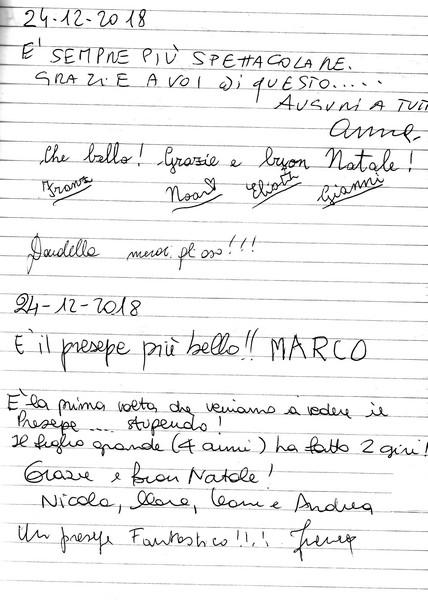 24-12-2018
E' SEMPRE PIÙ SPETTACOLARE.
GRAZIE A VOI di QUESTO.....
AUGURI A TUTT
Anna
Che bello! Grazie e buon Natale!
Franz Noa Gianni
24-12-2018
E' il presepe più bello!! MARCO
E' la prima volta che veniamo a vedere il
Presepe .... stupendo!
Il figlio grande (4 anni) ha fatto 2 giri!
Grazie e buon Natale!
Nicola, e Andrea
Un presepe Fantastico!!!!